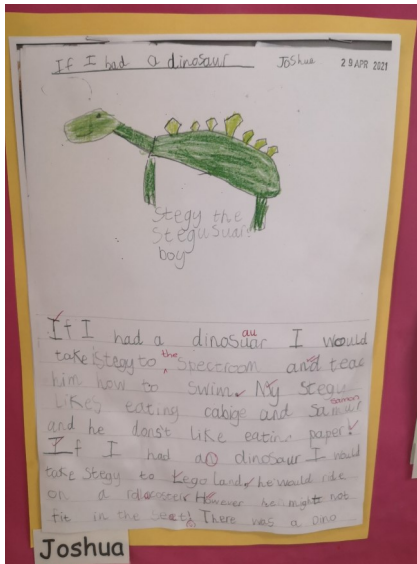 If I had a dinosaur Joshua 29 APR 2021
Stegy the
Stegusuar
boy
If I had a dinosuar au I would
take Stegy to the Spectroom and teac
him how to swim. My stegu
likes eating cabige and samon
and he donst like eatin paper!
If I had a dinosaur I would
take Stegy to Lego Land he would ride
on a However he might not
fit in the There was a Dino
Joshua